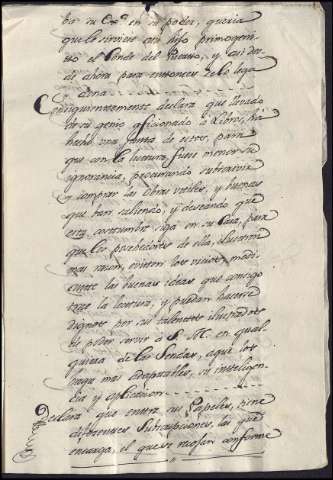 por su Exª en su poder, queria
que le sirviese asu hijo primogeni-
to el Conde del Puerto, y así des-
de ahora para entonces se lo lega
Consiguientemente declara que llevado
de su genio aficionado a Libros, ha
hecho una junta de estos, para
que con la lectura fuese menor su
ignorancia, procurando subscrivir
y comprar las obras utiles, y buenas
que han salido, y deseando que
esta costumbre siga en su Casa, para
que los poseedores de ella, ilustren
mas razon, eviten los vicios, medi-
ante las buenas ideas que consigo
trae la lectura, y puedan hacerse
dignos por sus talentos ilustrados
de poder servir a S. M. en qual
quiera de las sendas, aque los
haga mas adaptables, su inteligen-
cia y aplicacion
Declara que entre sus Papeles, tiene
diferentes Subscripciones, las que
encarga, el que se recojan conforme